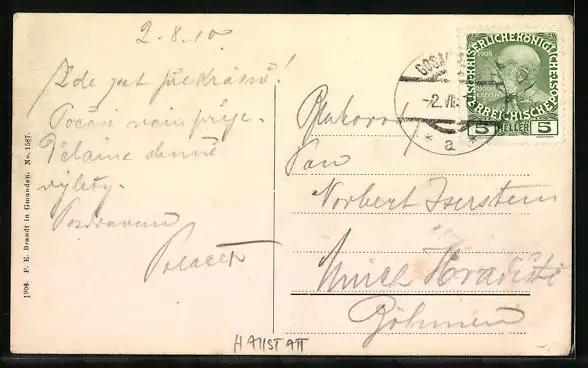 2.8.10.
Zde jest překrásně!
Počasí nám přeje.
Děláme denně
výlety.
Pozdravem
Polaček
1908 F. E. Brandt in Gmunden. No. 1587.
KAISERLICHE KÖNIGLICHE
ÖSTERREICHISCHE POST
5 HELLER 5
GOSA
-2.VII
* a *
Pan
Norbert Iserstein
Hradiště
Böhmen
HALLSTATT